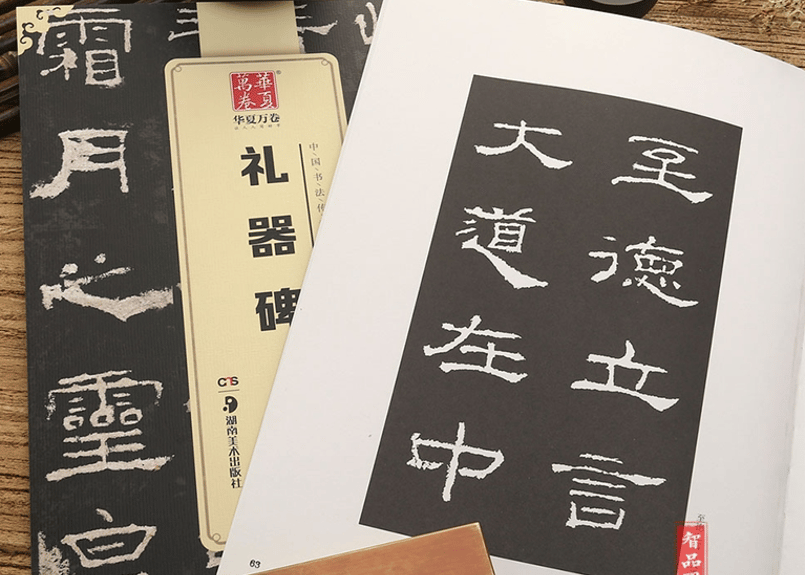 霜月之靈
華夏
萬卷
华夏万卷
礼器碑
中国书法传
湖南美术出版社
至德立言
大道在中
63
智品